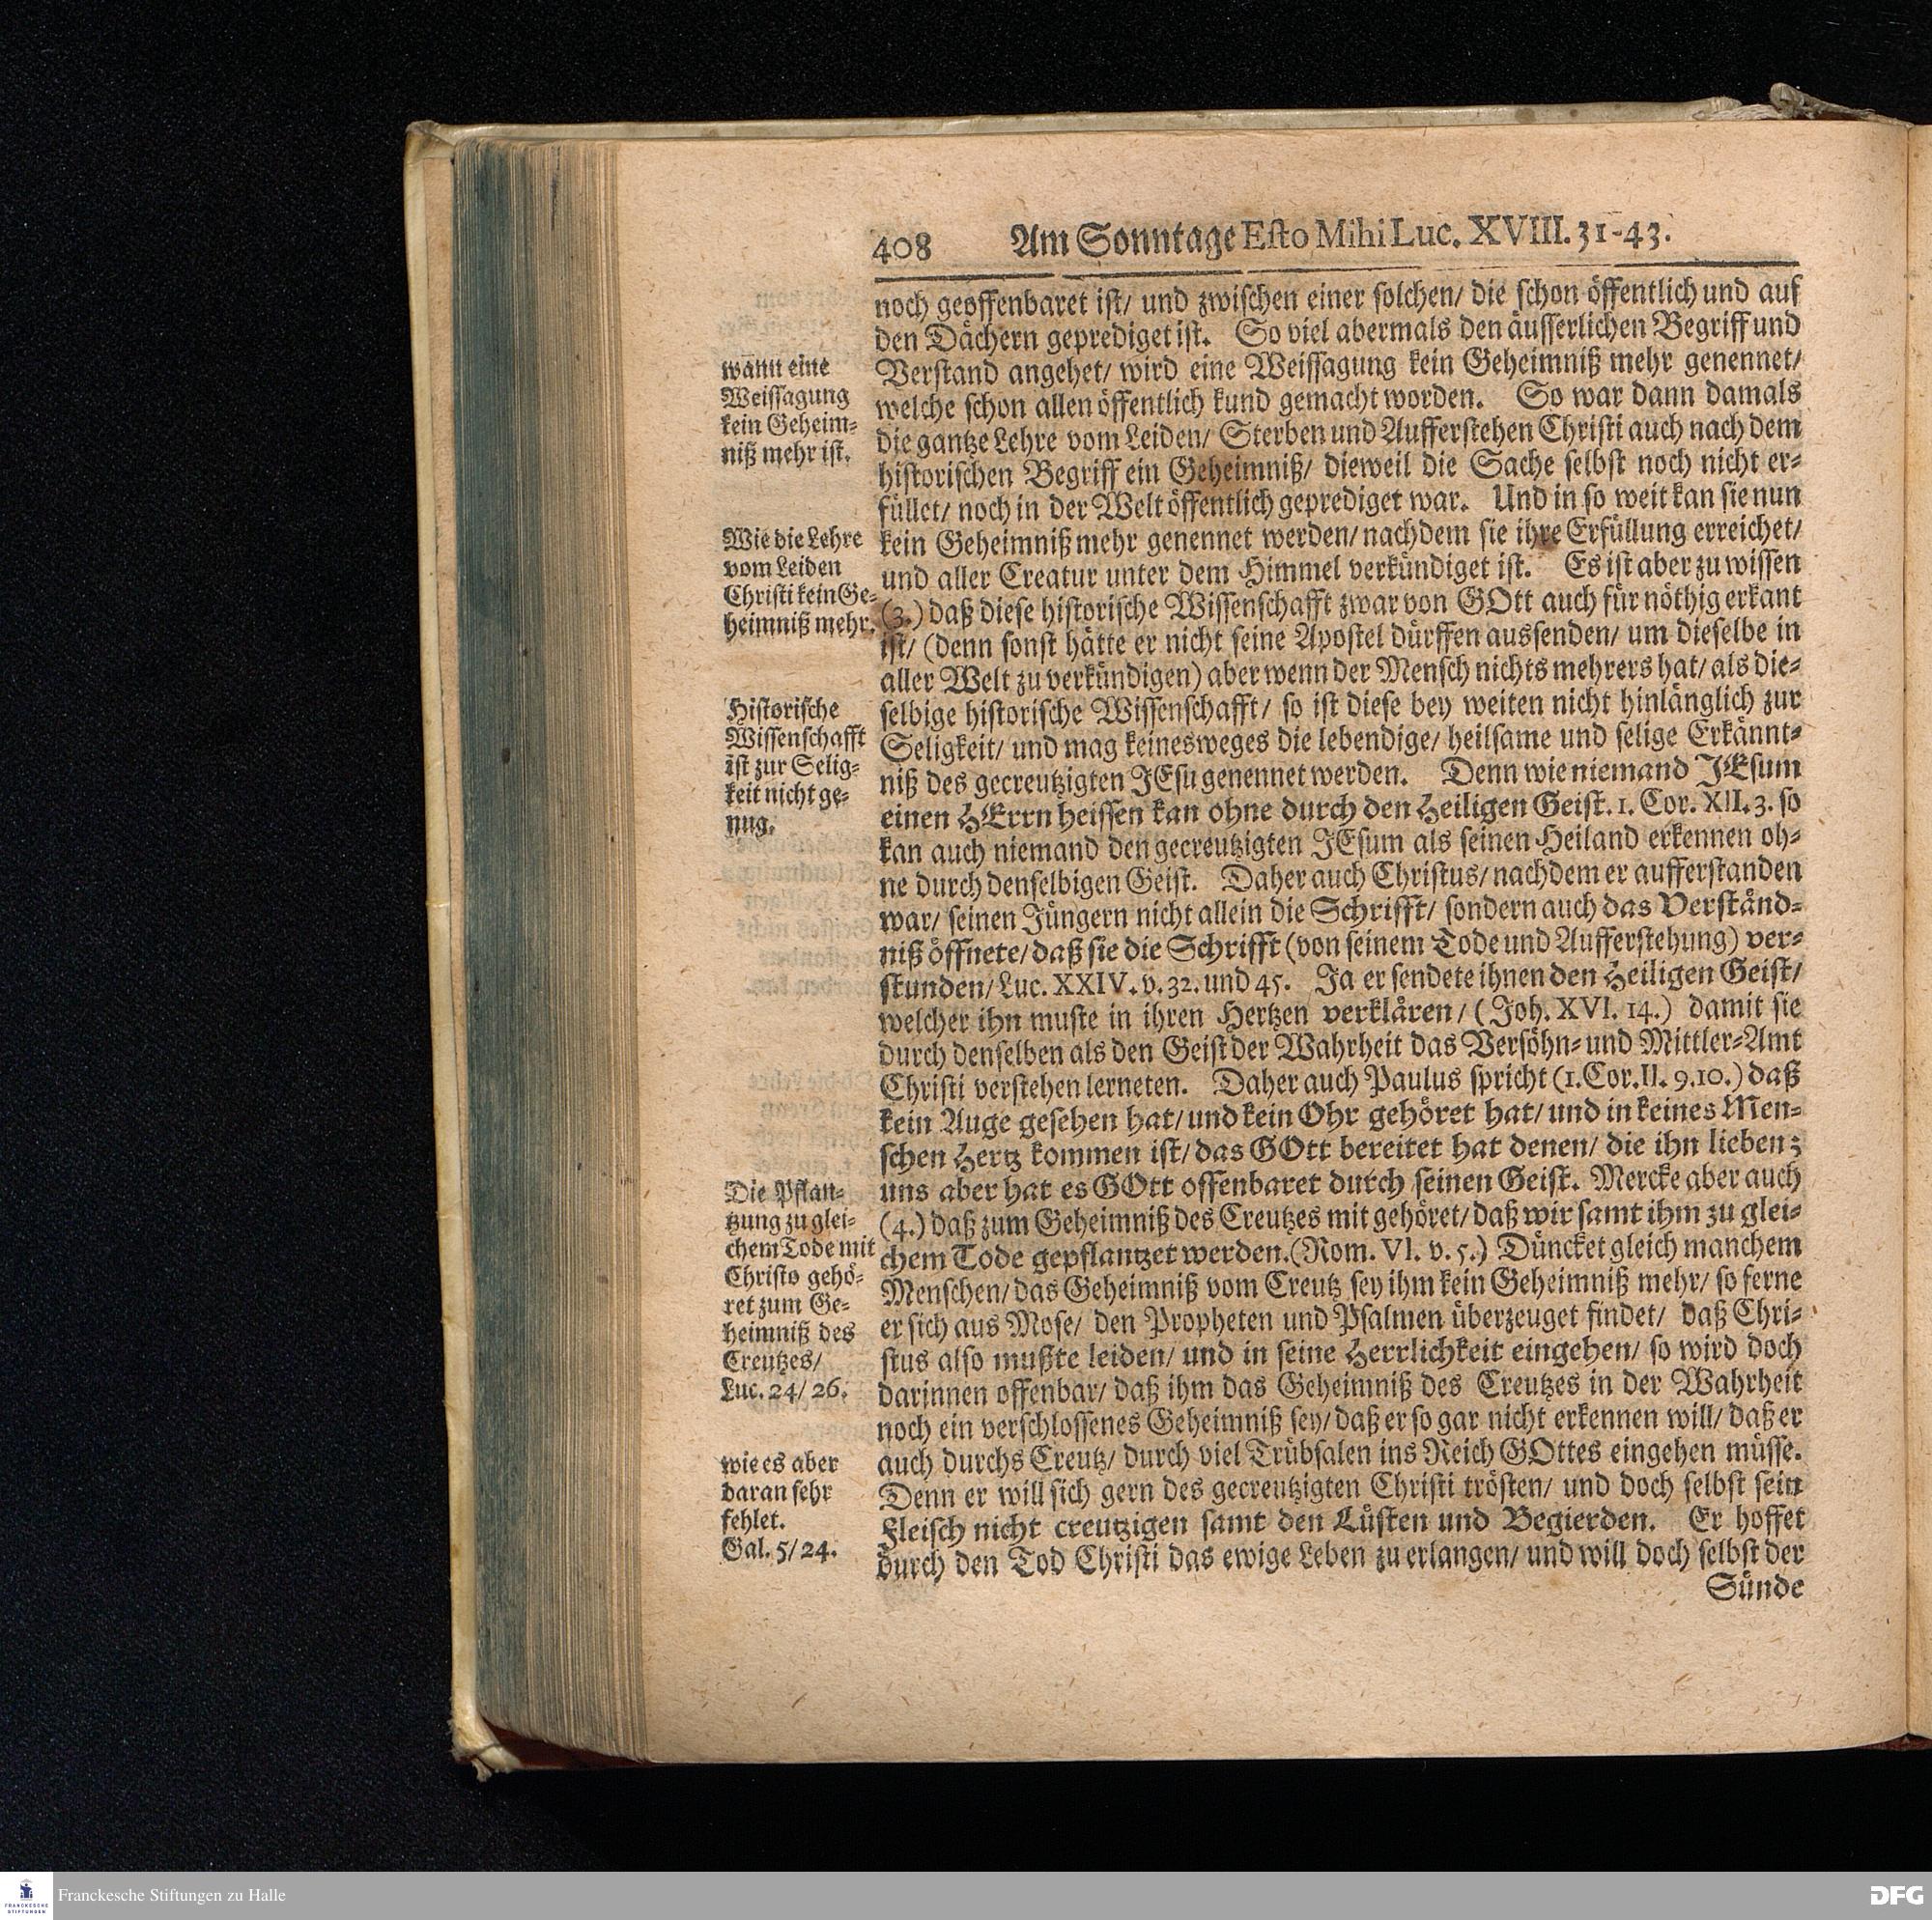 408 Am Sonntage Esto Mihi Luc. XVIII. 31-43.
noch geoffenbaret ist/ und zwischen einer solchen/ die schon öffentlich und auf
den Dächern geprediget ist. So viel abermals den äusserlichen Begriff und
Verstand angehet/ wird eine Weissagung kein Geheimniß mehr genennet/
welche schon allen öffentlich kund gemacht worden. So war dann damals
die gantze Lehre vom Leiden/ Sterben und Aufferstehen Christi auch nach dem
historischen Begriff ein Geheimniß/ dieweil die Sache selbst noch nicht er-
füllet/ noch in der Welt öffentlich geprediget war. Und in so weit kan sie nun
kein Geheimniß mehr genennet werden/ nachdem sie ihre Erfüllung erreichet/
und aller Creatur unter dem Himmel verkündiget ist. Es ist aber zu wissen
(3.) daß diese historische Wissenschafft zwar von GOtt auch für nöthig erkant
ist/ (denn sonst hätte er nicht seine Apostel dürffen aussenden/ um dieselbe in
aller Welt zu verkündigen) aber wenn der Mensch nichts mehrers hat/ als die-
selbige historische Wissenschafft/ so ist diese bey weiten nicht hinlänglich zur
Seligkeit/ und mag keinesweges die lebendige/ heilsame und selige Erkännt-
niß des gecreutzigten JEsu genennet werden. Denn wie niemand JEsum
einen HErrn heissen kan ohne durch den Heiligen Geist. 1. Cor. XII. 3. so
kan auch niemand den gecreutzigten JEsum als seinen Heiland erkennen oh-
ne durch denselbigen Geist. Daher auch Christus/ nachdem er aufferstanden
war/ seinen Jüngern nicht allein die Schrifft/ sondern auch das Verständ-
niß öffnete/ daß sie die Schrifft (von seinem Tode und Aufferstehung) ver-
stunden/ Luc. XXIV. v. 32. und 45. Ja er sendete ihnen den Heiligen Geist/
welcher ihn muste in ihren Hertzen verklären/ (Joh. XVI. 14.) damit sie
durch denselben als den Geist der Wahrheit das Versöhn- und Mittler-Amt
Christi verstehen lerneten. Daher auch Paulus spricht (1. Cor. II. 9. 10.) daß
kein Auge gesehen hat/ und kein Ohr gehöret hat/ und in keines Men-
schen Hertz kommen ist/ das GOtt bereitet hat denen/ die ihn lieben;
uns aber hat es GOtt offenbaret durch seinen Geist. Mercke aber auch
(4.) daß zum Geheimniß des Creutzes mit gehöret/ daß wir samt ihm zu glei-
chem Tode gepflantzet werden. (Rom. VI. v. 5.) Düncket gleich manchem
Menschen/ das Geheimniß vom Creutz sey ihm kein Geheimniß mehr/ so ferne
er sich aus Mose/ den Propheten und Psalmen überzeuget findet/ daß Chri-
stus also mußte leiden/ und in seine Herrlichkeit eingehen/ so wird doch
darinnen offenbar/ daß ihm das Geheimniß des Creutzes in der Wahrheit
noch ein verschlossenes Geheimniß sey/ daß er so gar nicht erkennen will/ daß er
auch durchs Creutz/ durch viel Trübsalen ins Reich GOttes eingehen müsse.
Denn er will sich gern des gecreutzigten Christi trösten/ und doch selbst sein
Fleisch nicht creutzigen samt den Lüsten und Begierden. Er hoffet
durch den Tod Christi das ewige Leben zu erlangen/ und will doch selbst der
Sünde
wann eine
Weissagung
kein Geheim-
niß mehr ist.
Wie die Lehre
vom Leiden
Christi kein Ge-
heimniß mehr.
Historische
Wissenschafft
ist zur Selig-
keit nicht ge-
nug.
Die Pflan-
tzung zu glei-
chem Tode mit
Christo gehö-
ret zum Ge-
heimniß des
Creutzes/
Luc. 24/ 26.
wie es aber
daran sehr
fehlet.
Gal. 5/ 24.
FRANCKESCHE
STIFTUNGEN
Franckesche Stiftungen zu Halle
DFG